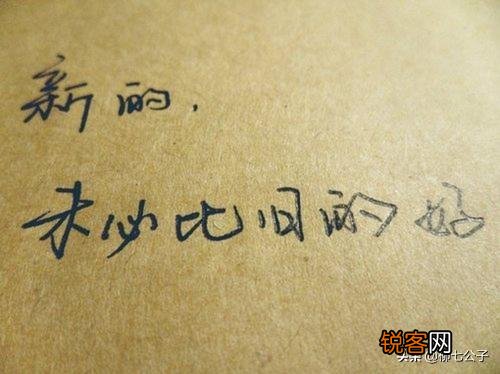 新的，
未必比旧的好
锐客网
头条 @柳七公子